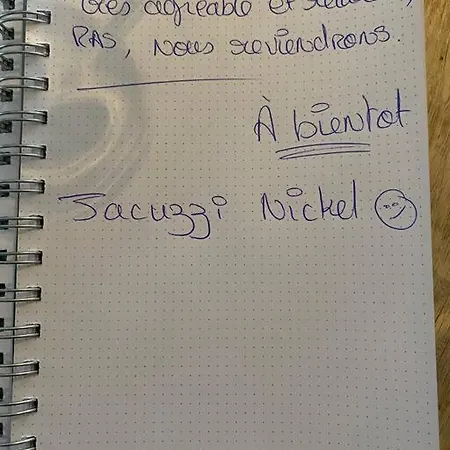 très agréable et
RAS, nous reviendrons.
À bientot
Jacuzzi Nickel